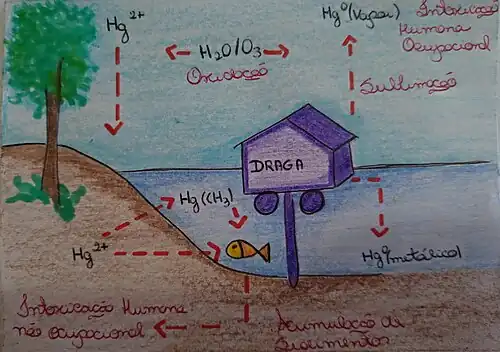 Hg²⁺
H₂O/O₃
Oxidação
Hg⁰(Vapor)
Intoxicação
Humana
Ocupacional
Sublimação
DRAGA
Hg(CH₃)
Hg²⁺
Hg⁰metálico)
Intoxicação Humana
não ocupacional
Acumulação de
Sedimentos